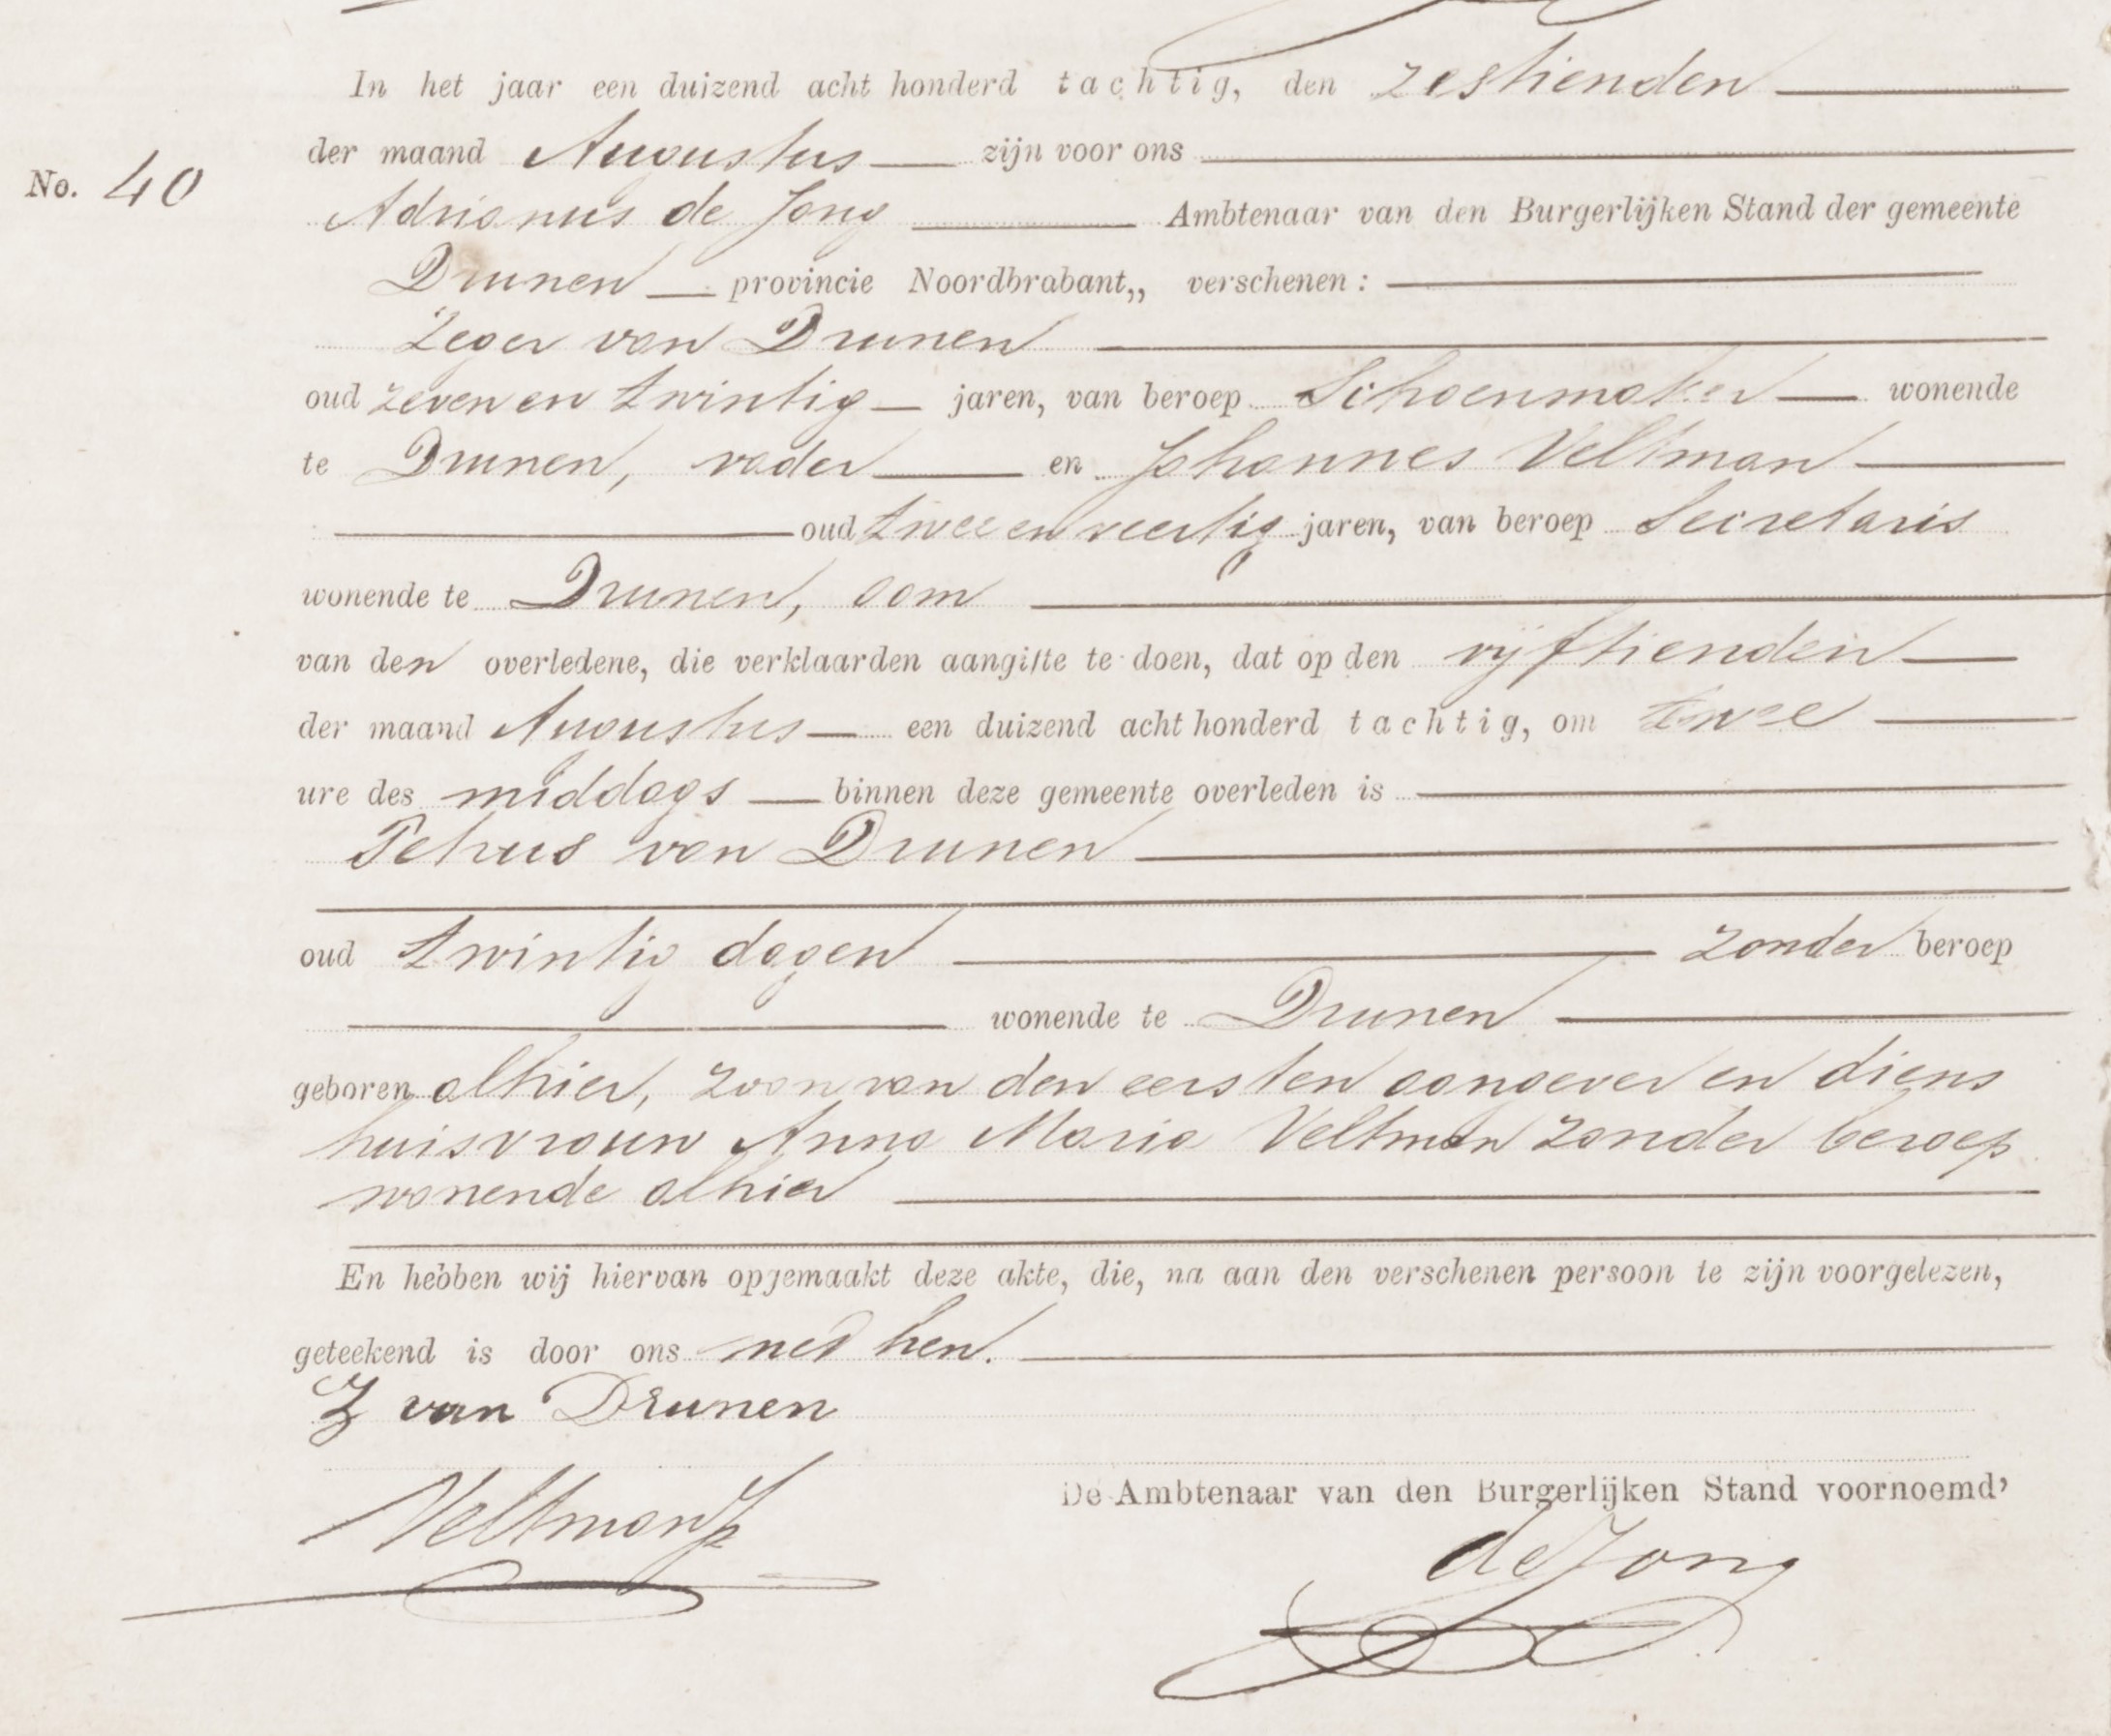 In het jaar een duizend acht honderd tachtig, den zestienden
der maand Augustus zijn voor ons
No. 40
Adrianus de Jong Ambtenaar van den Burgerlijken Stand der gemeente
Drunen provincie Noordbrabant,, verschenen:
Zeger van Drunen
oud zeven en twintig jaren, van beroep Schoenmaker wonende
te Drunen, vader en Johannes Veltman
oud twee en veertig jaren, van beroep Secretaris
wonende te Drunen, oom
van den overledene, die verklaarden aangifte te doen, dat op den vijftienden
der maand Augustus een duizend acht honderd tachtig, om twee
ure des middags binnen deze gemeente overleden is
Petrus van Drunen
oud twintig dagen zonder beroep
wonende te Drunen
geboren alhier, zoon van den eersten aangever en diens
huisvrouw Anna Maria Veltman zonder beroep
wonende alhier
En hebben wij hiervan opgemaakt deze akte, die, na aan den verschenen persoon te zijn voorgelezen,
geteekend is door ons met hen.
Z van Drunen
Veltman
De Ambtenaar van den Burgerlijken Stand voornoemd,
de Jong